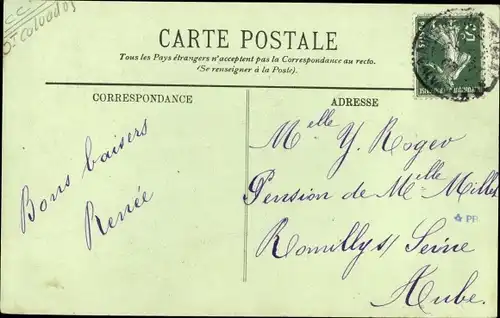 Calvados
CARTE POSTALE
Tous les Pays étrangers n'acceptent pas la Correspondance au recto.
(Se renseigner à la Poste).
CORRESPONDANCE
ADRESSE
Bons baisers
Renée
Melle Y. Roger
Pension de Melle Milley
Romilly s/ Seine
Aube.